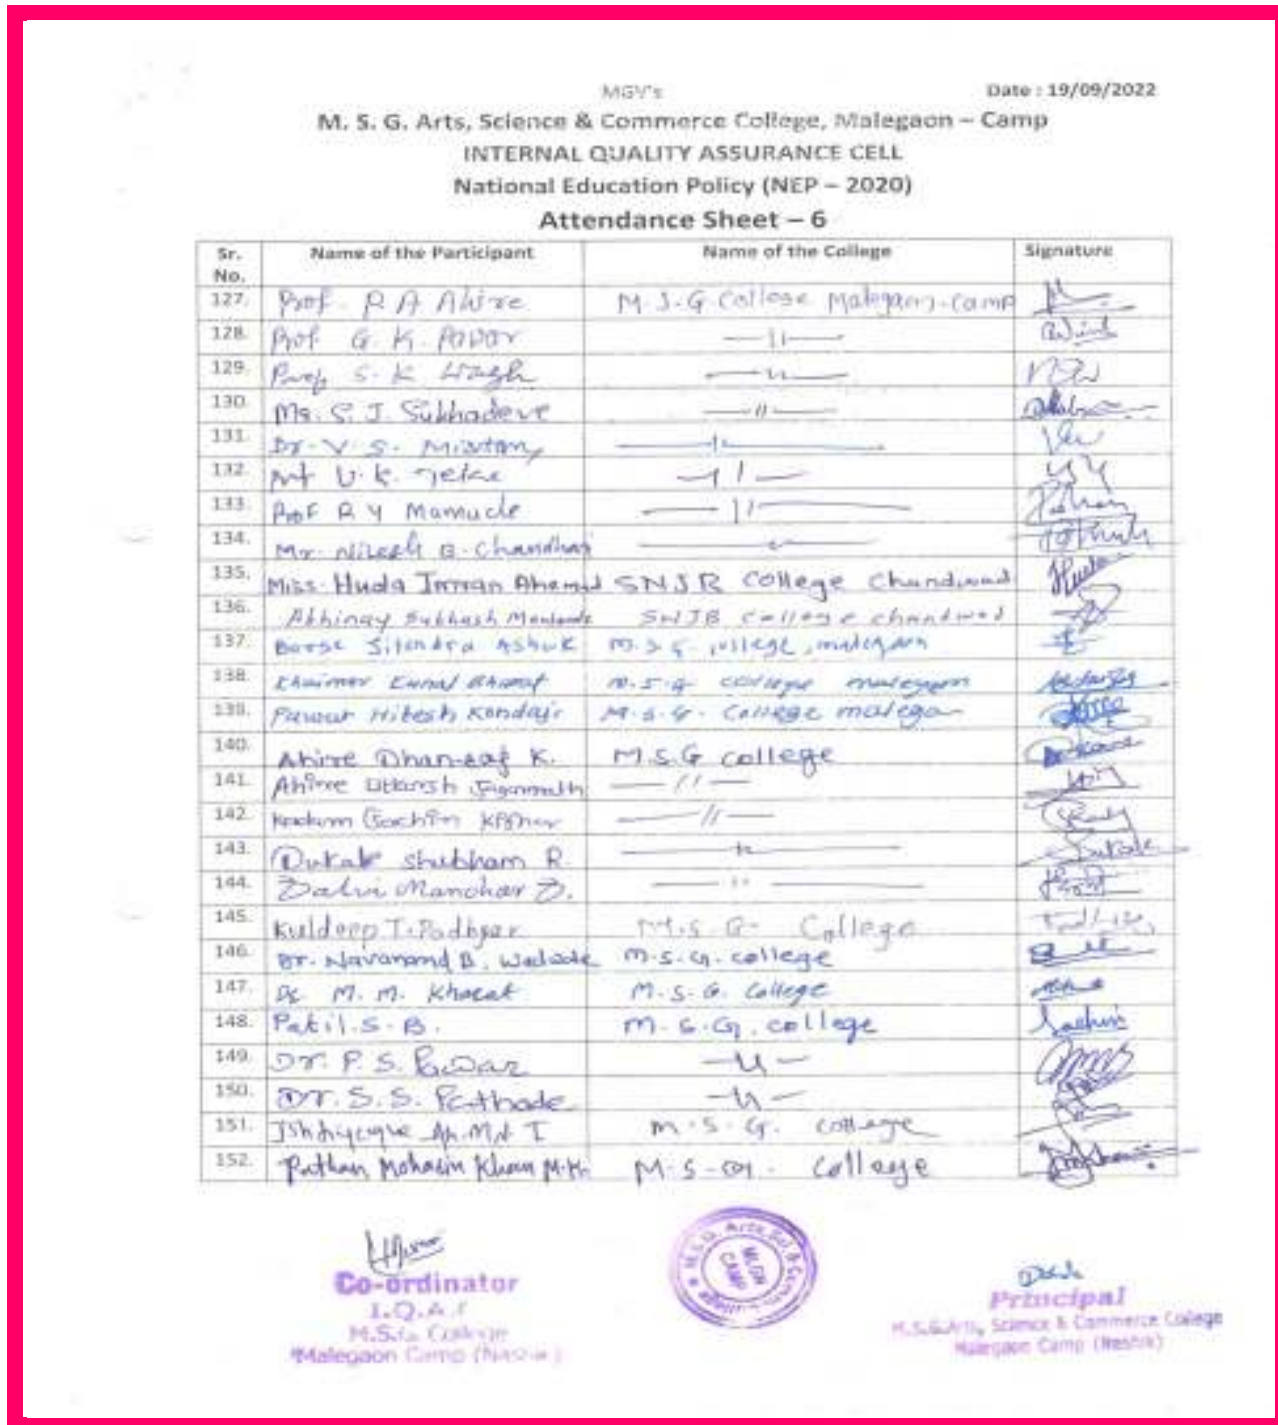 MGV's
Date : 19/09/2022
M. S. G. Arts, Science & Commerce College, Malegaon – Camp
INTERNAL QUALITY ASSURANCE CELL
National Education Policy (NEP – 2020)
Attendance Sheet – 6
Sr. No. Name of the Participant Name of the College Signature
127. Prof. R A Ahire M.S.G College Malegaon-Camp
128. Prof G. K. Pavar —11—
129. Prof S. K Wagh —u—
130. Ms. S. J. Sukhadeve —11—
131. Dr. V. S. Mistary
132. U. K. —11—
133. Prof R Y Mamude —11—
134. Mr. Nilesh B. Chaudhari
135. Miss. Huda Imran Ahemad SNJB College Chandwad
136. Abhinay Subhash SNJB College chandwad
137. Borse Jitendra Ashok M.S.G college, malegaon
138. Khairnar Kunal Bharat M.S.G college malegaon
139. Pawar Hitesh Kondaji M.S.G. College malegaon
140. Ahire Dhanraj K. M.S.G college
141. Ahire Utkarsh Jagannath —11—
142. Kadam Sachin Kishor —11—
143. Dukale shubham R.
144. Dalvi Manohar D. —11—
145. Kuldeep T. Padhyar M.S.G- College
146. Dr. Navanand B. M.S.G. college
147. Dr. M. M. Kharat M.S.G. College
148. Patil. S. B. M.S.G. college Sachin
149. Dr. P. S. Pawar —u—
150. Dr. S. S. Pathade —u—
151. M.S.G. college
152. Pathan Mohasin Khan M.S.G. College
Co-ordinator
I.Q.A.C
M.S.G. College
Malegaon Camp (Nashik)
M.S.G. Arts, Sci. & Comm. College
MLGN CAMP
Principal
M.S.G.Arts, Science & Commerce College
Malegaon Camp (Nashik)